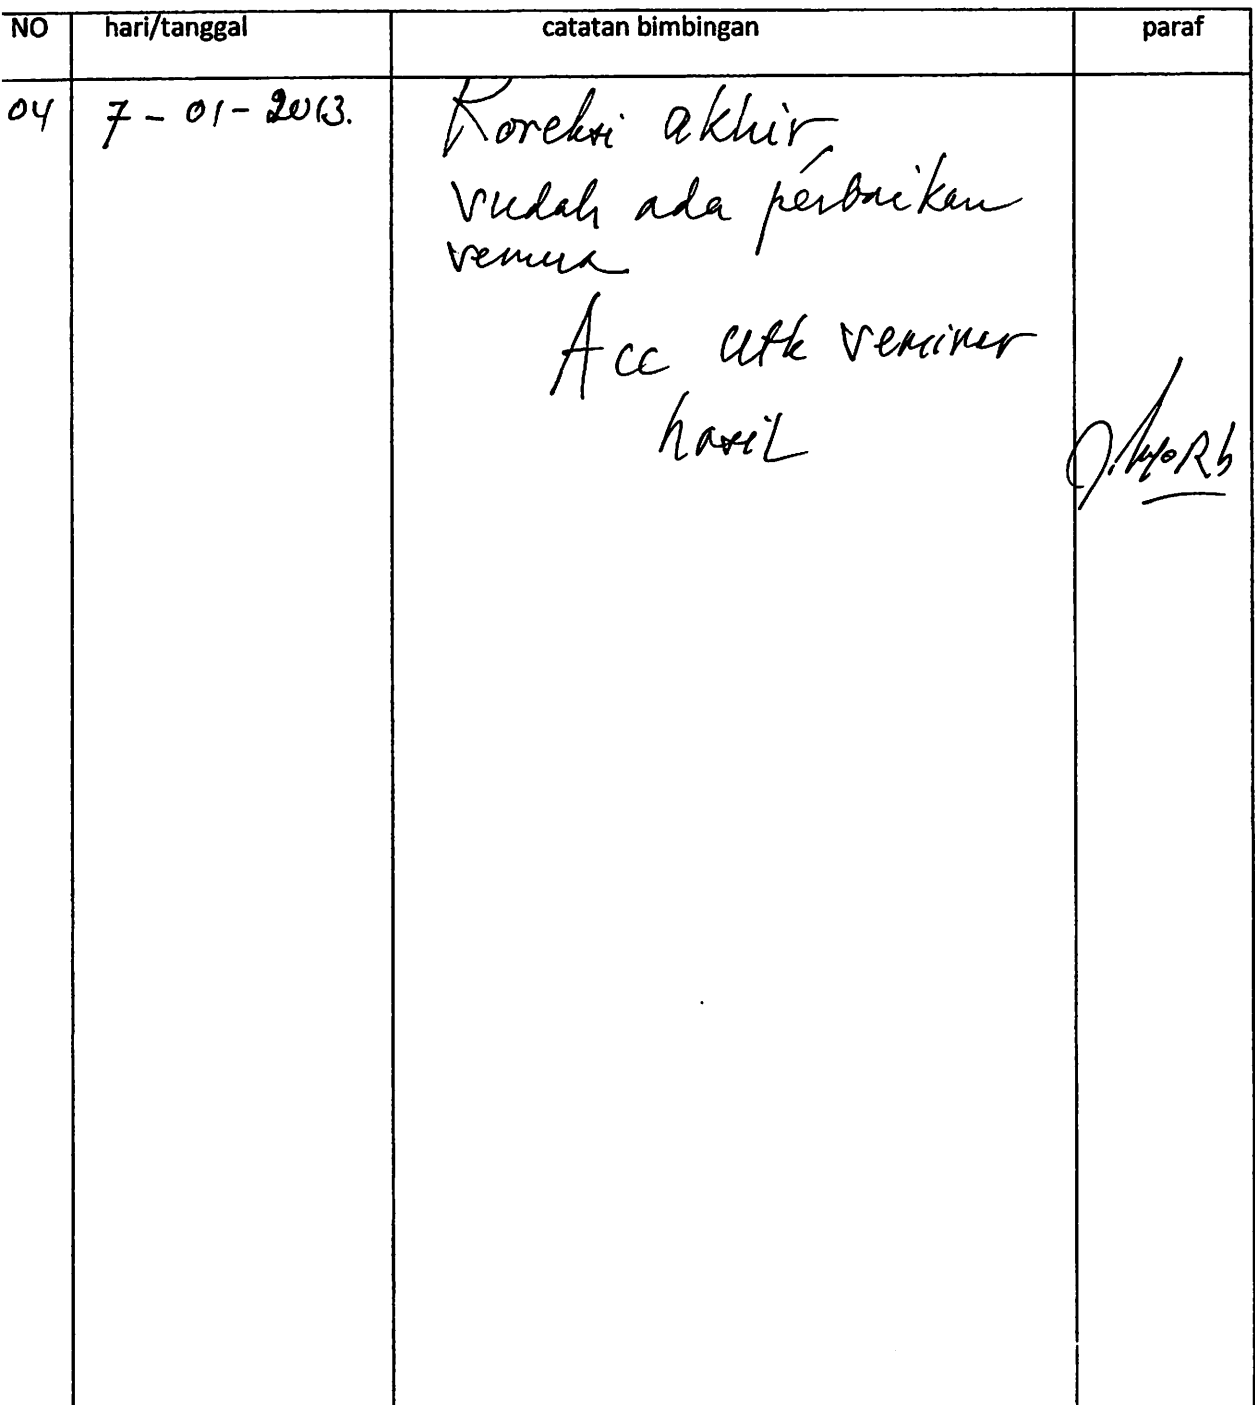 NO hari/tanggal catatan bimbingan paraf
04 7 - 01 - 2013. Koreksi akhir,
sudah ada perbaikan
semua
Acc utk seminar
hasil